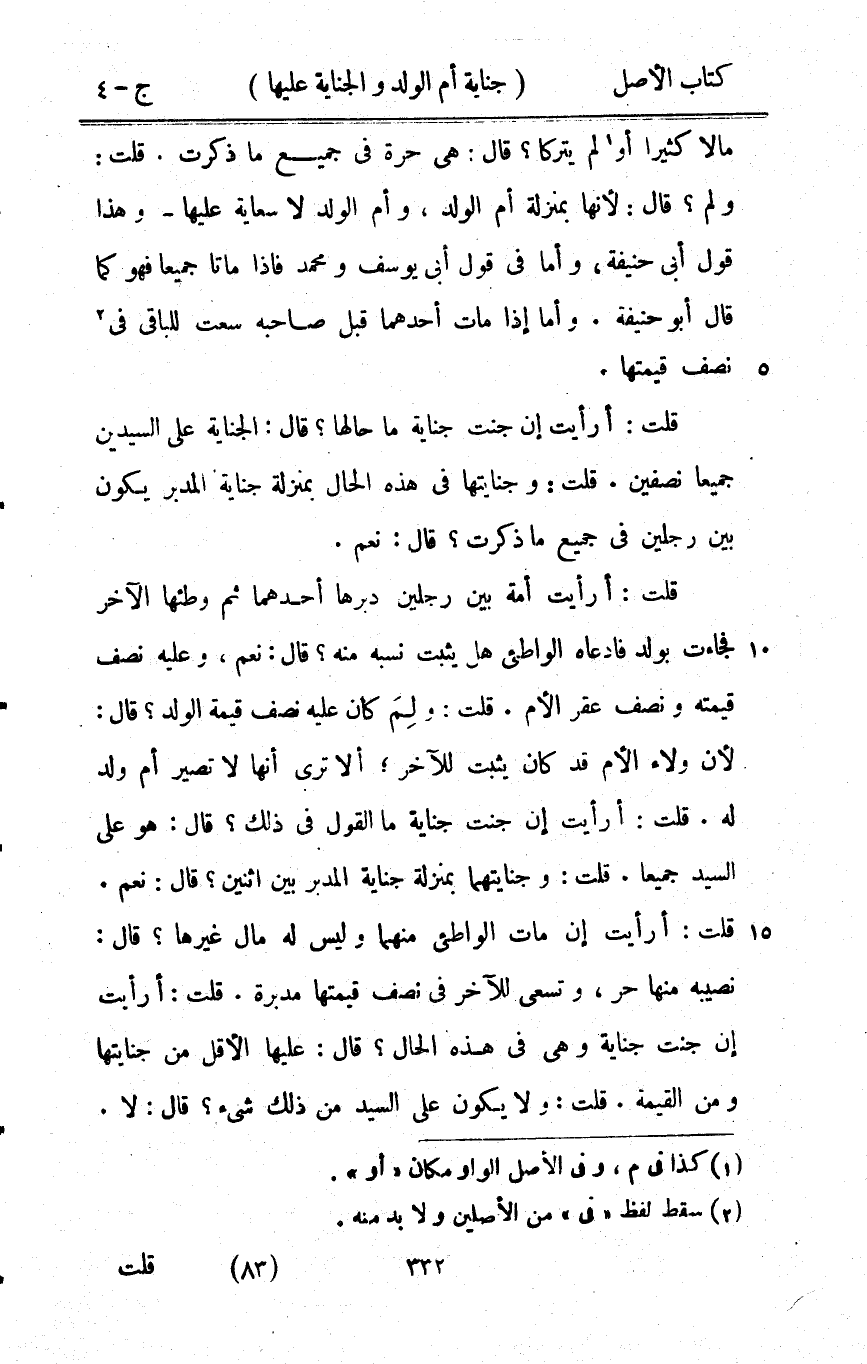 كتاب الأصل ( جناية أم الولد و الجناية عليها ) ج - ٤
مالا كثيرا أو١ لم يتركا ؟ قال : هى حرة فى جميع ما ذكرت . قلت :
و لم ؟ قال : لأنها بمنزلة أم الولد ، و أم الولد لا سعاية عليها - و هذا
قول أبى حنيفة ، و أما فى قول أبى يوسف و محمد فاذا ماتا جميعا فهو كما
قال أبو حنيفة . و أما إذا مات أحدهما قبل صاحبه سعت للباقى فى٢
٥ نصف قيمتها .
قلت : أ رأيت إن جنت جناية ما حالها ؟ قال : الجناية على السيدين
جميعا نصفين . قلت : و جنايتها فى هذه الحال بمنزلة جناية المدبر يكون
بين رجلين فى جميع ما ذكرت ؟ قال : نعم .
قلت : أ رأيت أمة بين رجلين دبرها أحدهما ثم وطئها الآخر
١٠ فجاءت بولد فادعاه الواطئ هل يثبت نسبه منه ؟ قال : نعم ، و عليه نصف
قيمته و نصف عقر الأم . قلت : و لِمَ كان عليه نصف قيمة الولد ؟ قال :
لأن ولاء الأم قد كان يثبت للآخر ؛ ألا ترى أنها لا تصير أم ولد
له . قلت : أ رأيت إن جنت جناية ما القول فى ذلك ؟ قال : هو على
السيد جميعا . قلت : و جنايتهما بمنزلة جناية المدبر بين اثنين ؟ قال : نعم .
١٥ قلت : أ رأيت إن مات الواطئ منهما و ليس له مال غيرها ؟ قال :
نصيبه منها حر ، و تسعى للآخر فى نصف قيمتها مدبرة . قلت : أ رأيت
إن جنت جناية و هى فى هذه الحال ؟ قال : عليها الأقل من جنايتها
و من القيمة . قلت : و لا يكون على السيد من ذلك شىء ؟ قال : لا .
(١) كذا فى م ، و فى الأصل الواو مكان « أو » .
(٢) سقط لفظ « فى » من الأصلين و لا بد منه .
٣٣٢ (٨٣) قلت